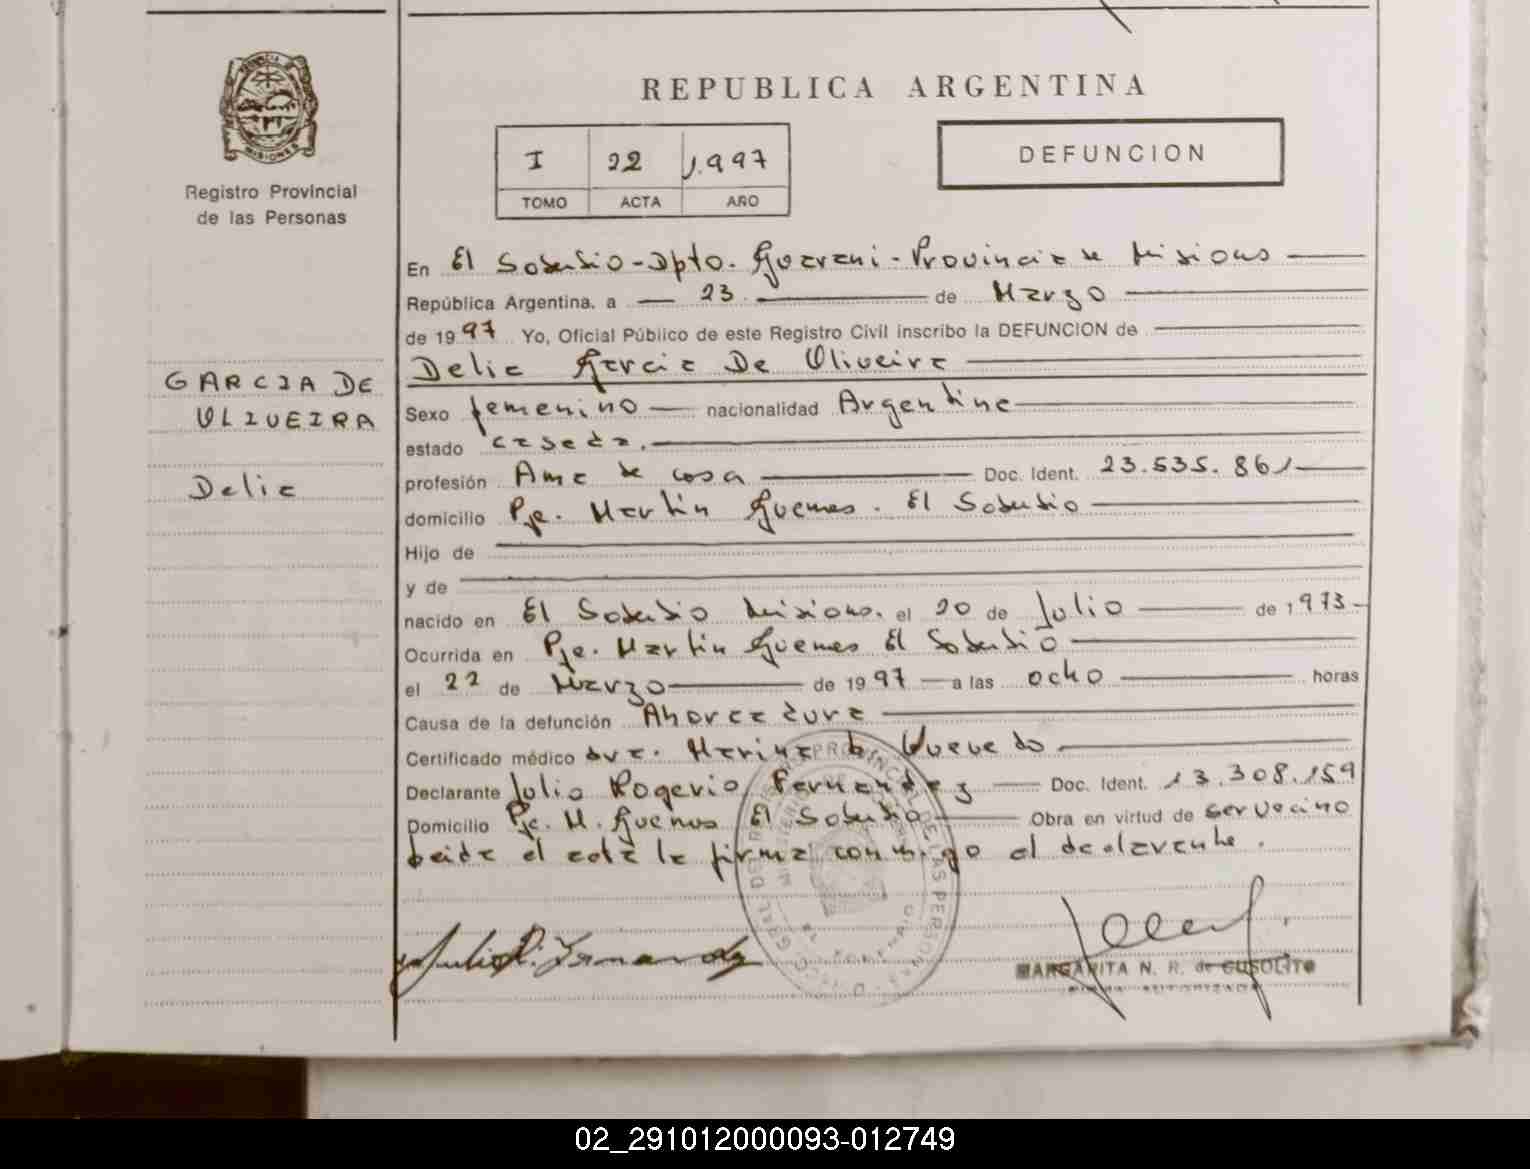 REPUBLICA ARGENTINA
PROVINCIA DE MISIONES
Registro Provincial
de las Personas
I 22 1.997
TOMO ACTA AÑO
DEFUNCION
En El Soberbio - Dpto. Guarani - Provincia de Misiones
República Argentina, a 23 de Marzo
de 1997 Yo, Oficial Público de este Registro Civil inscribo la DEFUNCION de
Delia Garcia De Oliveira
GARCIA DE
OLIVEIRA
Delia
Sexo femenino nacionalidad Argentina
estado casada.
profesión Ama de casa Doc. Ident. 23.535.861
domicilio Pje. Martin Guemes. El Soberbio
Hijo de
y de
nacido en El Soberbio Misiones. el 20 de Julio de 1973
Ocurrida en Pje. Martin Guemes El Soberbio
el 22 de Marzo de 1997 a las ocho horas
Causa de la defunción Ahorcadura
Certificado médico Dra. Marina
Declarante Julio Rogerio Fernandez Doc. Ident. 13.308.159
Domicilio Pje. M. Guemes El Soberbio Obra en virtud de ser vecino
leida el acta la firma conmigo el declarante.
Julio R. Fernandez
MARGARITA N. R. de CUSOLITO
FIRMA AUTORIZADA
02_291012000093-012749